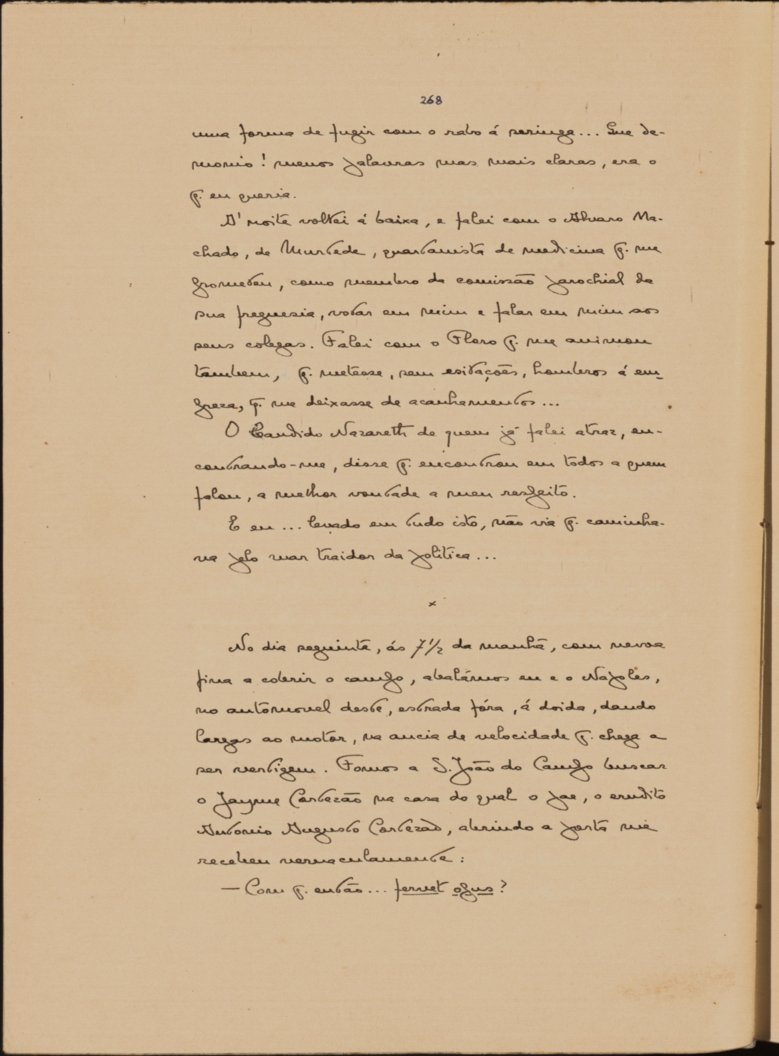 268
uma forma de fugir com o rabo á seringa... Que de-
monio! menos palavras mas mais claras, era o
q. eu queria.
A' noite voltei á baixa, e falei com o Alvaro Ma-
chado, de Murtede, quartanista de medicina q. me
prometeu, como membro da comissão parochial da
sua freguesia, votar em mim e falar em mim aos
seus colegas. Falei com o Floro q. me animou
tambem, q. metesse, sem esitações, hombros á em-
preza, q. me deixasse de acanhamentos...
O Candido Nazareth de quem já falei atraz, en-
contrando-me, disse q. encontrou em todos a quem
falou, a melhor vontade a meu respeito.
E eu... levado em tudo isto, não via q. caminha-
va pelo mar traidor da politica...
×
No dia seguinte, ás 7 1/2 da manhã, com nevoa
fina a cobrir o campo, abalámos eu e o Nápoles,
no automovel deste, estrada fóra, á doida, dando
largas ao motor, na ancia de velocidade q. chega a
ser vertigem. Fomos a S. João do Campo buscar
o Jayme Cortezão na casa do qual o pae, o erudito
Antonio Augusto Cortezão, abrindo a porta me
recebeu vernaculamente:
— Com q. então... fervet opus?